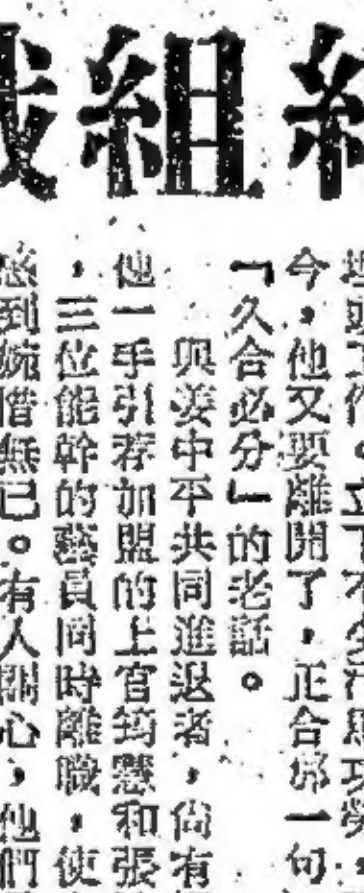 組
埋頭工作。立下不少汗馬功勞
今，他又要離開了，正合那一句
「久合必分」的老話。
與姜中平共同進退者，尚有
他一手引荐加盟的上官筠慧和張
，三位能幹的藝員同時離職，使
感到婉惜無已。有人關心，他們